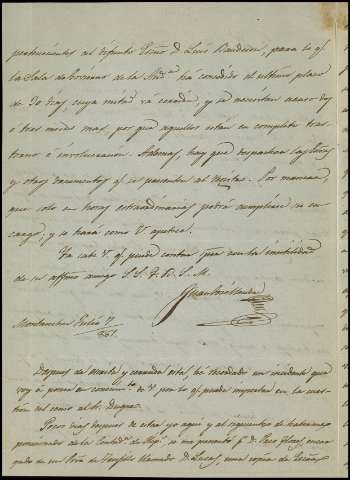 pertenecientes al difunto Escno D. Luis Baudecon, para lo qe
la Sala de Gobierno de la Auda ha concedido el ultimo plazo
de 30 dias cuya mitad vá corrida, y se necesitan acaso dos
ó tres meses mas, por que aquellos están en completo tras-
torno é involucracion. Ademas, hay que despachar
y otros documentos qe se presentan al. Por manera,
que solo en horas estraordinarias podrá cumplirse su en-
cargo, y se hará como V. apetece.
Ya sabe V. qe puede contar con la inutilidad
de su affmo amigo S. S. Q. B. S. M.
Juan
Montanchez 7
861.
Despues de escrita y cerrada esta, he recordado un incidente que
voy á poner en conocimto de V. por lo qe pueda importar en la cues-
tion así como al Sr. Duque.
Pocos dias despues de estar yo aquí y al siguiente de haberme
posesionado de la Contada de Hipas se me presentó D. Paco Flores, encar-
gado de un Sr. de Trujillo llamado D. Lucas, una copia de Escritª